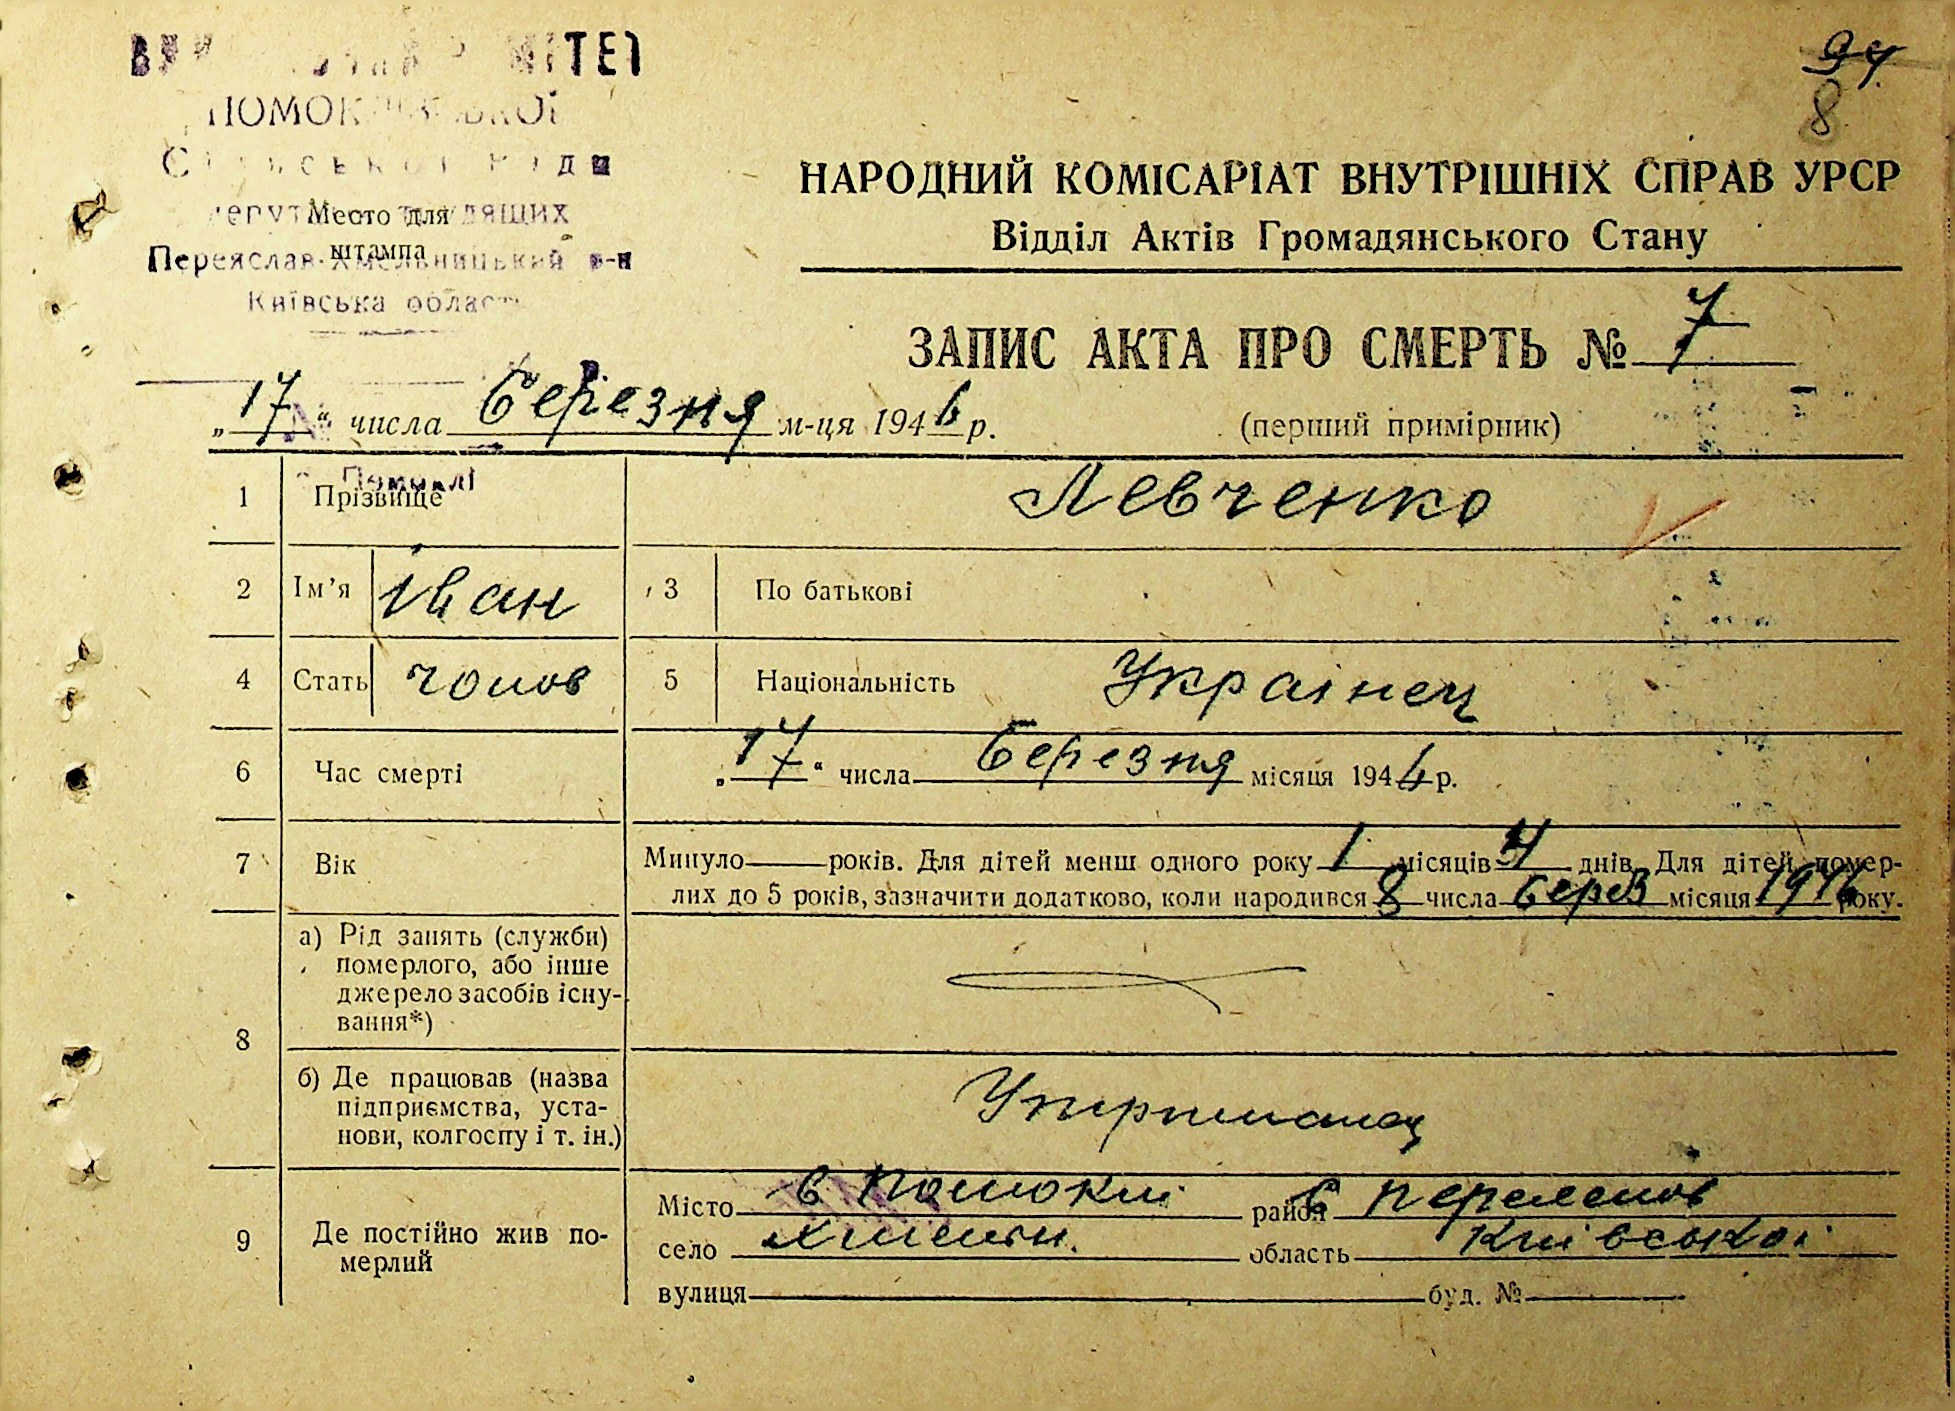 97
8
ПОМОК
Место для
штампа
Переяслав-Хмельницький р-н
Київська область
НАРОДНИЙ КОМІСАРІАТ ВНУТРІШНІХ СПРАВ УРСР
Відділ Актів Громадянського Стану
ЗАПИС АКТА ПРО СМЕРТЬ № 7
„17“ числа березня м-ця 1946 р.
(перший примірник)
Помоклі
1 Прізвище Левченко
2 Ім’я іван 3 По батькові
4 Стать чолов 5 Національність Українец
6 Час смерті „17“ числа березня місяця 1946 р.
7 Вік Минуло років. Для дітей менш одного року 1 місяців днів. Для дітей помер-
лих до 5 років, зазначити додатково, коли народився 8 числа берез місяця 1946 року.
8 а) Рід занять (служби)
померлого, або інше
джерело засобів існу-
вання*)
б) Де працював (назва
підприємства, уста-
нови, колгоспу і т. ін.)
Утриманец
9 Де постійно жив по-
мерлий
Місто с Помоклі район
село область Київської
вулиця буд. №